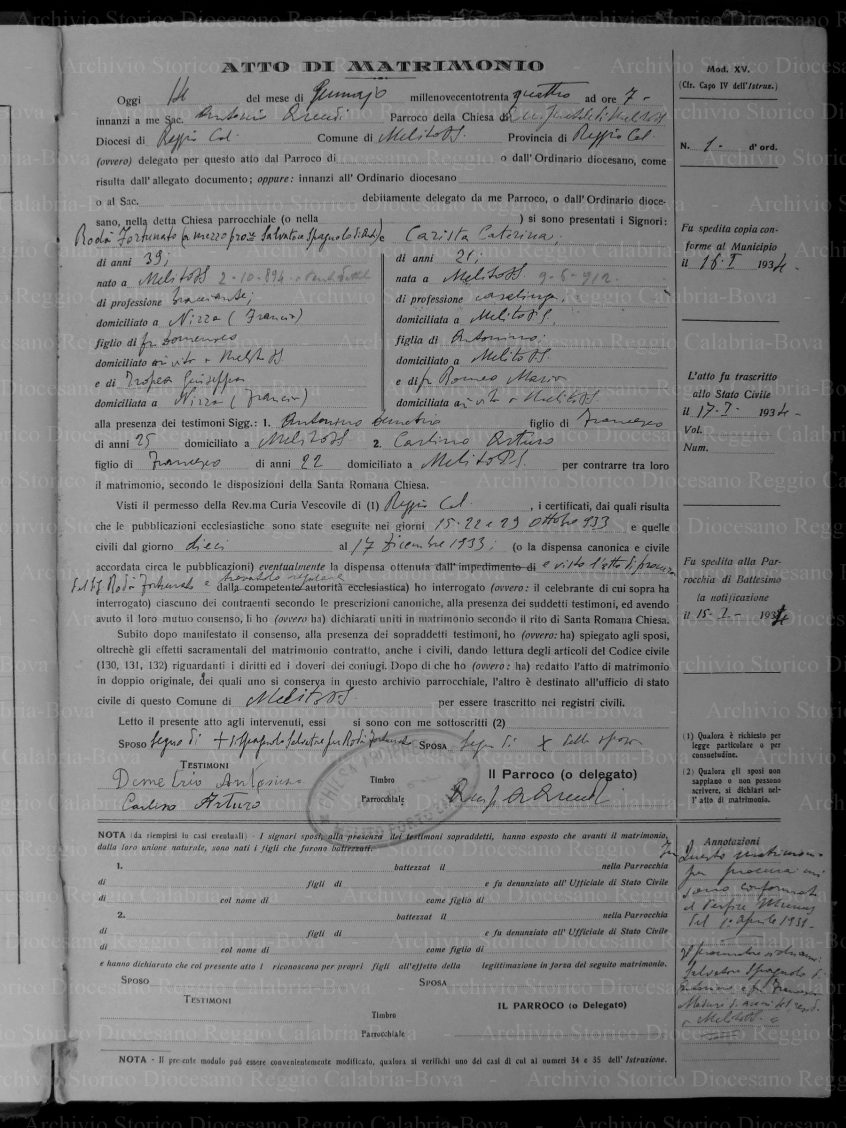 ATTO DI MATRIMONIO
Mod. XV.
(Cfr. Capo IV dell'Istruz.)
Oggi 14 del mese di Gennajo millenovecentotrenta quattro ad ore 7 -
innanzi a me Sac. Antonio Parroco della Chiesa di
Diocesi di Reggio Cal. Comune di Melito P.S. Provincia di Reggio Cal.
N. 1 - d'ord.
(ovvero) delegato per questo atto dal Parroco di o dall'Ordinario diocesano, come
risulta dall'allegato documento; oppure: innanzi all'Ordinario diocesano
o al Sac. debitamente delegato da me Parroco, o dall'Ordinario dioce-
sano, nella detta Chiesa parrocchiale (o nella ) si sono presentati i Signori:
Rodà Fortunato (a mezzo proc. Salvatore Spagnolo di ) e Carista Caterina,
di anni 39; di anni 21;
nato a Melito P.S. 2-10-894 nata a Melito P.S. 9-6-912.
di professione bracciante; di professione casalinga;
domiciliato a Nizza (Francia) domiciliata a Melito P.S.
figlio di fu Domenico figlia di Antonino;
domiciliato in vita a Melito P.S. domiciliato a Melito P.S.
e di Tropea Giuseppa e di fu Romeo Maria
domiciliata a Nizza (Francia) domiciliata in vita a Melito P.S.
alla presenza dei testimoni Sigg.: 1. Antonino Demetrio figlio di Francesco
di anni 25 domiciliato a Melito P.S. 2. Carlino Arturo
figlio di Francesco di anni 22 domiciliato a Melito P.S. per contrarre tra loro
il matrimonio, secondo le disposizioni della Santa Romana Chiesa.
Visti il permesso della Rev.ma Curia Vescovile di (1) Reggio Cal. , i certificati, dai quali risulta
che le pubblicazioni ecclesiastiche sono state eseguite nei giorni 15-22 e 29 Ottobre 933 e quelle
civili dal giorno dieci al 17 Dicembre 1933; (o la dispensa canonica e civile
accordata circa le pubblicazioni) eventualmente la dispensa ottenuta dall'impedimento di e visto l'atto di procura
Rodà Fortunato e trovatolo regolare dalla competente autorità ecclesiastica) ho interrogato (ovvero: il celebrante di cui sopra ha
interrogato) ciascuno dei contraenti secondo le prescrizioni canoniche, alla presenza dei suddetti testimoni, ed avendo
avuto il loro mutuo consenso, li ho (ovvero ha) dichiarati uniti in matrimonio secondo il rito di Santa Romana Chiesa.
Subito dopo manifestato il consenso, alla presenza dei sopraddetti testimoni, ho (ovvero: ha) spiegato agli sposi,
oltrechè gli effetti sacramentali del matrimonio contratto, anche i civili, dando lettura degli articoli del Codice civile
(130, 131, 132) riguardanti i diritti ed i doveri dei coniugi. Dopo di che ho (ovvero: ha) redatto l'atto di matrimonio
in doppio originale, dei quali uno si conserva in questo archivio parrocchiale, l'altro è destinato all'ufficio di stato
civile di questo Comune di Melito P.S. per essere trascritto nei registri civili.
Letto il presente atto agli intervenuti, essi si sono con me sottoscritti (2)
SPOSO Segno di + di Spagnolo Salvatore per Rodà Fortunato SPOSA Segno di X della sposa
TESTIMONI
Demetrio Antonino
Carlino Arturo
Timbro
Parrocchiale
Il Parroco (o delegato)
Fu spedita copia con-
forme al Municipio
il 16-I 1934 -
L'atto fu trascritto
allo Stato Civile
il 17-I- 1934 -
Vol.
Num.
Fu spedita alla Par-
rocchia di Battesimo
la notificazione
il 15-I- 1934
(1) Qualora è richiesto per
legge particolare o per
consuetudine.
(2) Qualora gli sposi non
sappiano o non possono
scrivere, si dichiari nel-
l'atto di matrimonio.
NOTA (da riempirsi in casi eventuali) - I signori sposi, alla presenza dei testimoni sopraddetti, hanno esposto che avanti il matrimonio,
dalla loro unione naturale, sono nati i figli che furono battezzati:
1. battezzat il nella Parrocchia
di figli di e fu denunziato all'Ufficiale di Stato Civile
di col nome di come figlio di
2. battezzat il nella Parrocchia
di figli di e fu denunziato all'Ufficiale di Stato Civile
di col nome di come figlio di
e hanno dichiarato che col presente atto l riconoscono per propri figli all'effetto della legittimazione in forza del seguito matrimonio.
SPOSO SPOSA
TESTIMONI
Timbro
Parrocchiale
IL PARROCO (o Delegato)
Annotazioni
Questo matrimonio
per procura
del 1° Aprile 1931 -
Salvatore Spagnolo
NOTA - Il presente modulo può essere convenientemente modificato, qualora si verifichi uno dei casi di cui ai numeri 34 e 35 dell'Istruzione.
Archivio Storico Diocesano Reggio Calabria-Bova